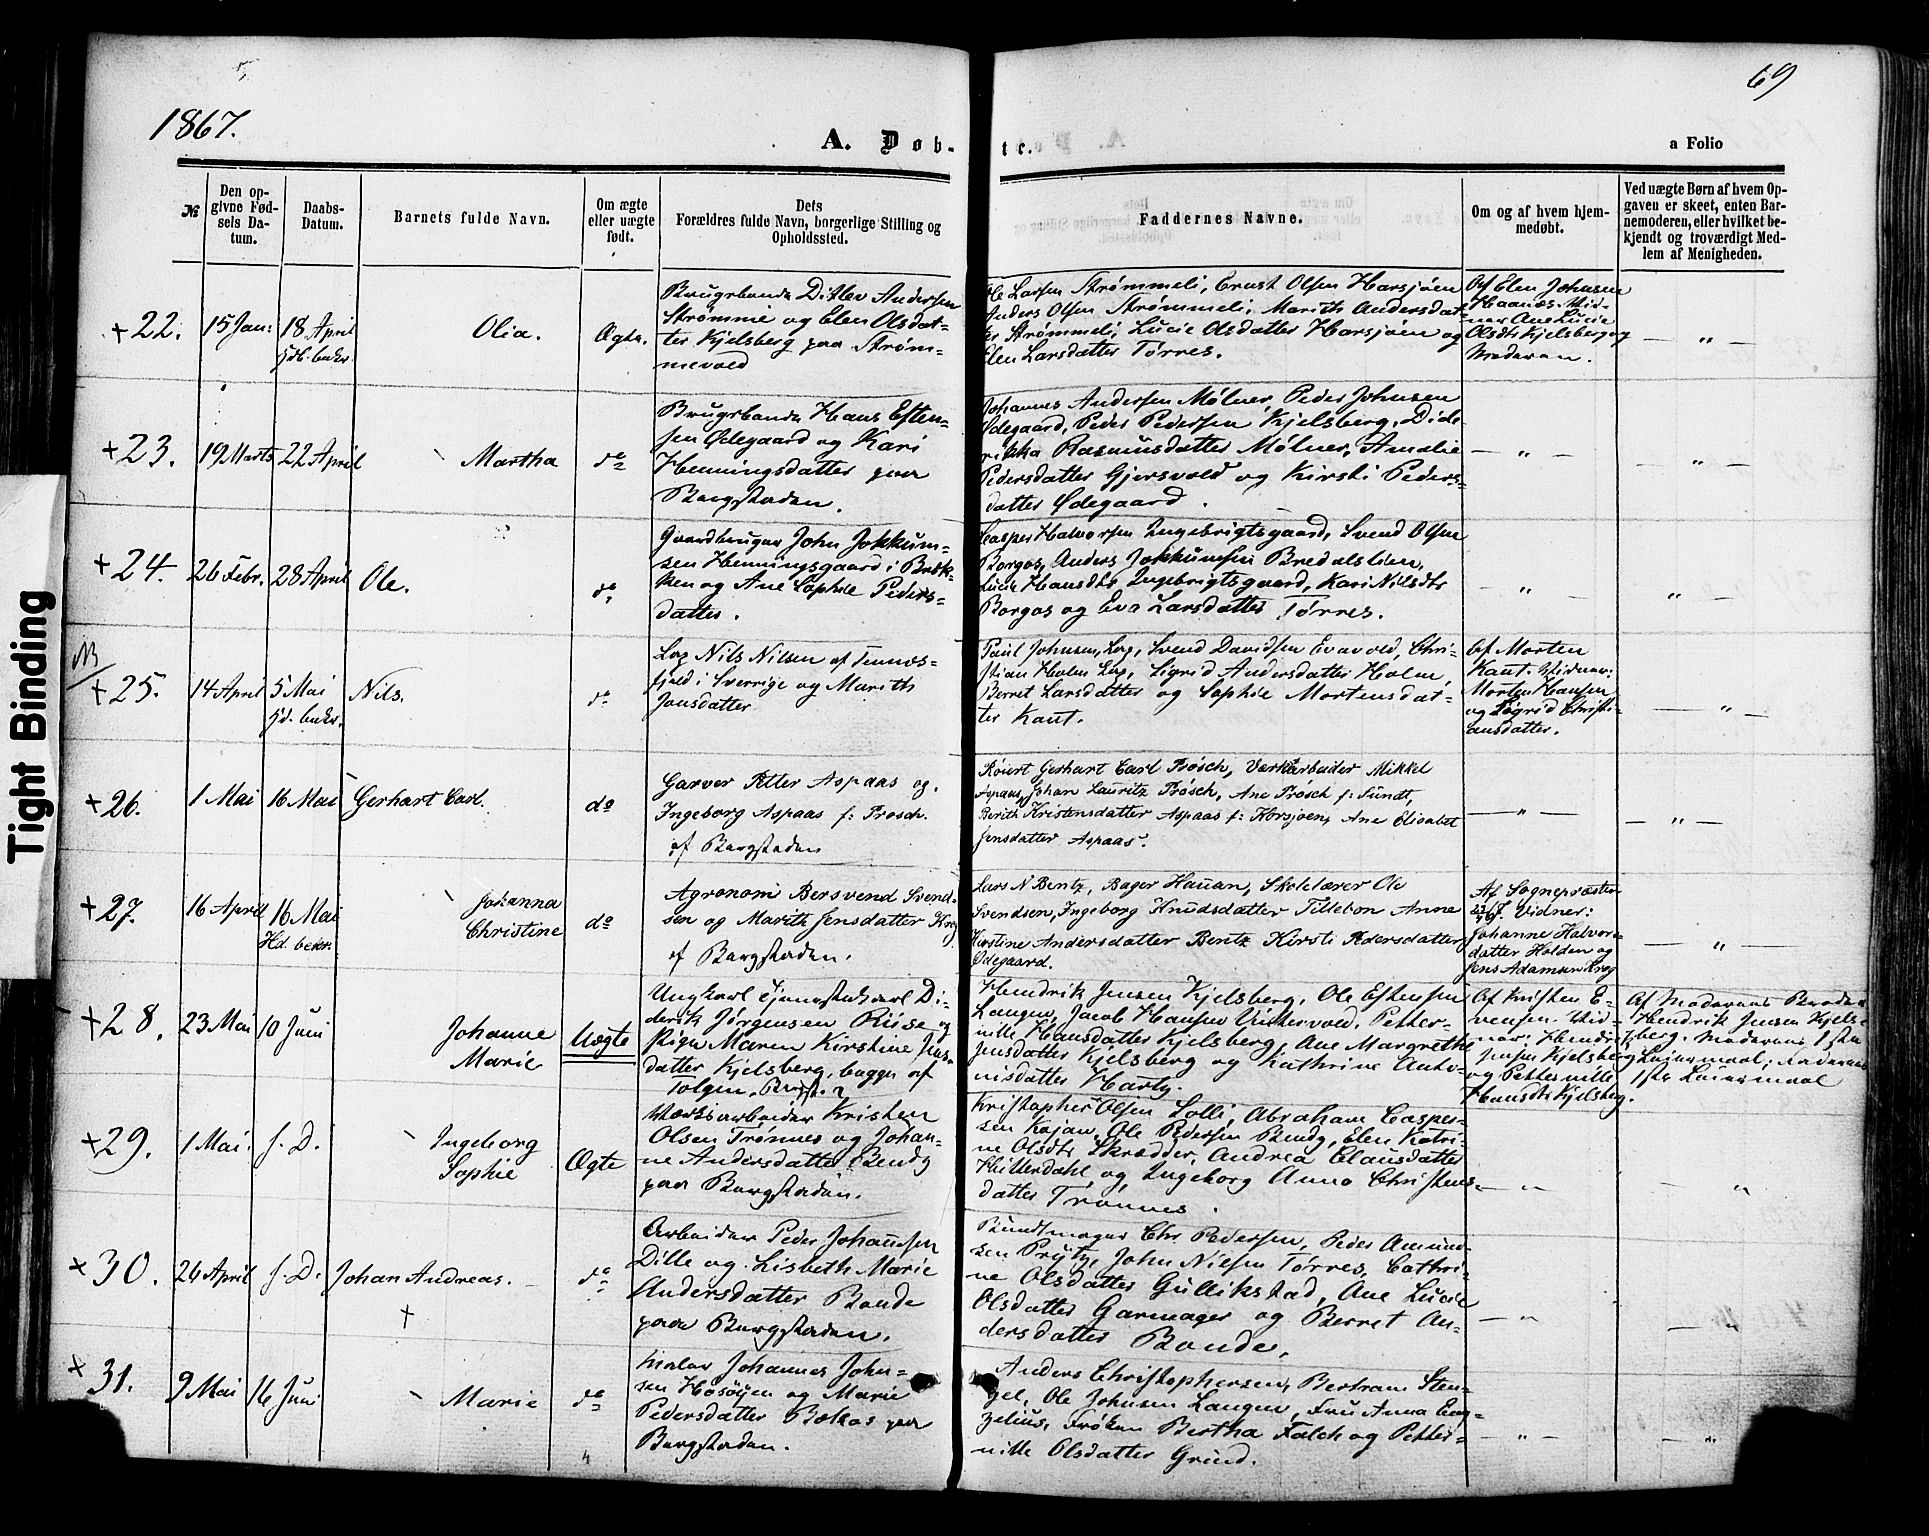 69
1867.
A. Døb-
te.
a Folio
№
Den op-
givne Fød-
sels Da-
tum.
Daabs-
Datum.
Barnets fulde Navn.
Om ægte
eller uægte
født.
Dets
Forældres fulde Navn, borgerlige Stilling og
Opholdssted.
Faddernes Navne.
Om og af hvem hjem-
medøbt.
Ved uægte Børn af hvem Op-
gaven er skeet, enten Bar-
nemoderen, eller hvilket be-
kjendt og troværdigt Med-
lem af Menigheden.
+22.
15 Jan:
18 April
Olia.
Ægte.
Ditlev Andersen
Strømme og Elen Olsdat-
ter Kjelsberg paa Strøm-
mevold
Ole Larsen Strømmeli, Ernst Olsen Harsjøen
Anders Olsen Strømmeli, Marith Andersdat-
ter Strømmeli, Lucie Olsdatter Harsjøen og
Elen Larsdatter Tørres.
Af Elen Johnsen
Haanæs. Vid-
ner Ane Lucie
Olsdtr Kjelsberg og
Moderen.
— " —
+23.
19 Marts
22 April
Martha
do
Hans Esten-
sen Ødegaard og Kari
Henningsdatter paa
Bergstaden.
Johannes Andersen Mølner, Peder Johnsen
Ødegaard, Peder Pedersen Kjelsberg, Dide-
rikka Rasmusdatter Mølner, Amalie
Pedersdatter Gjersvold og Kirsti Peders-
datter Ødegaard.
— " —
— " —
+24.
26 Febr.
28 April
Ole.
do
Gaardbruger John Jokkum-
sen Henningsgaard i Bræk-
ken og Ane Sophie Peders-
datter.
Casper Halvorsen Ingebrigtsgaard, Svend Olsen
Borgos, Anders Jokkumsen Bredalslien,
Lucie Hansdtr Ingebrigtsgaard, Kari Nilsdtr
Borgos og Eva Larsdatter Tørres.
— " —
" —
NB
+25.
14 April
5 Mai
Nils.
do
Lap Nils Nilsen af Tennæs-
fjeld i Sverrige og Marith
Jonsdatter
Paul Johnsen, Lap, Svend Davidsen Evavold, Chri-
stian Holm Lap, Sigrid Andersdatter Holm,
Berret Larsdatter og Sophie Mortensdat-
ter Kant.
Af Morten
Kant. Vidner:
Morten Hansen
og Sigrid Christi-
ansdatter.
— " —
+26.
1 Mai
16 Mai
Gerhart Carl.
do
Garver Petter Aspaas og
Ingeborg Aspaas f: Prøsch.
af Bergstaden
Gerhart Carl Prøsch, Værksarbeider Mikkel
Aspaas, Johan Lauritz Prøsch, Ane Prøsch f: Sundt,
Berith Kristensdatter Aspaas f: Korsjoen, Ane Elisabet
Jensdatter Aspaas.
— " —
— " —
+27.
16 April
16 Mai
Johanna
Christine
do
Agronom Bersvend Svend-
sen og Marith Jensdatter Krog
af Bergstaden.
Lars N Bentz, Bager Hauan, Skolelærer Ole
Svendsen, Ingeborg Knudsdatter Tillebon Anne
Kirstine Andersdatter Bentz Kirsti Pedersdatter
Ødegaard.
Af Sognepræsten
Vidner:
Johanne Halvors-
datter Holden og
Jens Adamsen Krog
— " —
+28.
23 Mai
10 Juni
Johanne
Marie
Uægte
Ungkarl Tjenestekarl Di-
derik Jørgensen Riise og
Pige Maren Kirstine Jens-
datter Kjelsberg, begge af
Tolgen.
Hendrik Jensen Kjelsberg, Ole Estensen
Langen, Jacob Hansen Vintervold, Petter-
nille Hansdatter Kjelsberg, Ane Margrethe
Jensdatter Kjelsberg og Kathrine Anto-
nisdatter Harty.
Af Kristen E-
vensen. Vid-
ner: Hendrik
Jensen Kjelsberg
og Petternille
Hansdtr Kjelsberg.
Af Moderens Broder
Hendrik Jensen Kjels-
berg. Moderens 1ste
Leiermaal; Faderens
1ste Leiermaal
+29.
1 Mai.
s. D.
Ingeborg
Sophie
Ægte
Værksarbeider Kristen
Olsen Trønnes og Johan-
ne Andersdatter Bendy
paa Bergstaden.
Kristopher Olsen Lolli, Abraham Casper-
sen Kojan, Ole Pedersen Bendy, Elen Katri-
ne Olsdtr Skrædder, Andrea Clausdatter
Hitterdahl og Ingeborg Anna Christens-
datter Trønnes.
— " —
"
+30.
26 April
s. D.
Johan Andreas.
+
do
Arbeider Peder Johannsen
Dille og Lisbeth Marie
Andersdatter Bonde
paa Bergstaden.
Bundtmager Chr Pedersen, Peder Amund-
sen Prytz, John Nilsen Tørres, Cathri-
ne Olsdatter Gullikstad, Ane Lucie
Olsdatter Garmager og Berret An-
dersdatter Bonde.
— " —
— "
+31.
9 Mai
16 Juni
Marie
do
Maler Johannes John-
sen Høsøyen og Marie
Pedersdatter Bækos paa
Bergstaden.
Anders Christophersen, Bertram Sten-
gel, Ole Johnsen Langen, Fru Anna Eng-
zelius, Frøken Bertha Falch og Petter-
nille Olsdatter Grind.
— " —
— "
4
Tight Binding